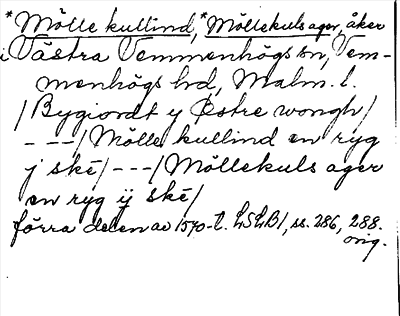 *Mölle kullind, *Möllekuls ager, åker
i Västra Vemmenhögs sn, Vem-
menhögs hd, Malm. l.
/Bygiordt y Østre wongh/
- - -/Mölle kullind en ryg
j ske/ - - -/Möllekuls ager
en ryg ij ske/
förra delen av 1570-t. LSLB1, ss. 286, 288.
orig.